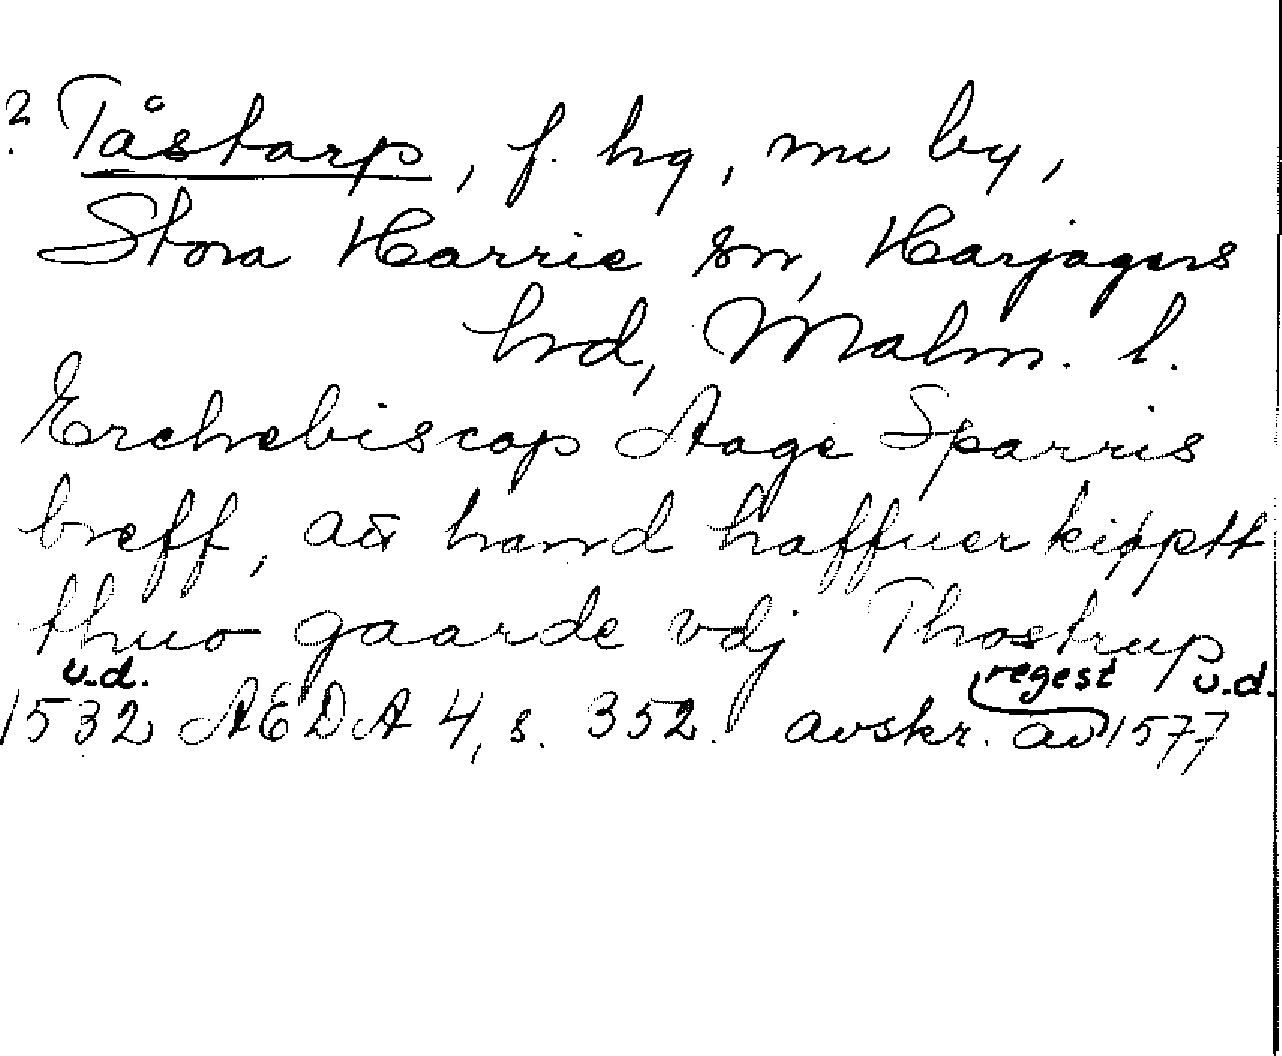 ? Tåstarp, f. hg, nu by,
Stora Harrie sn, Harjagers
hrd, Malm. l.
Erchebiscop Aage Sparris
breff, att hand haffuer kipptt
thuo gaarde vdj Thostrup
u.d. regest u.d.
1532 AEDA 4, s. 352. avskr. av 1577